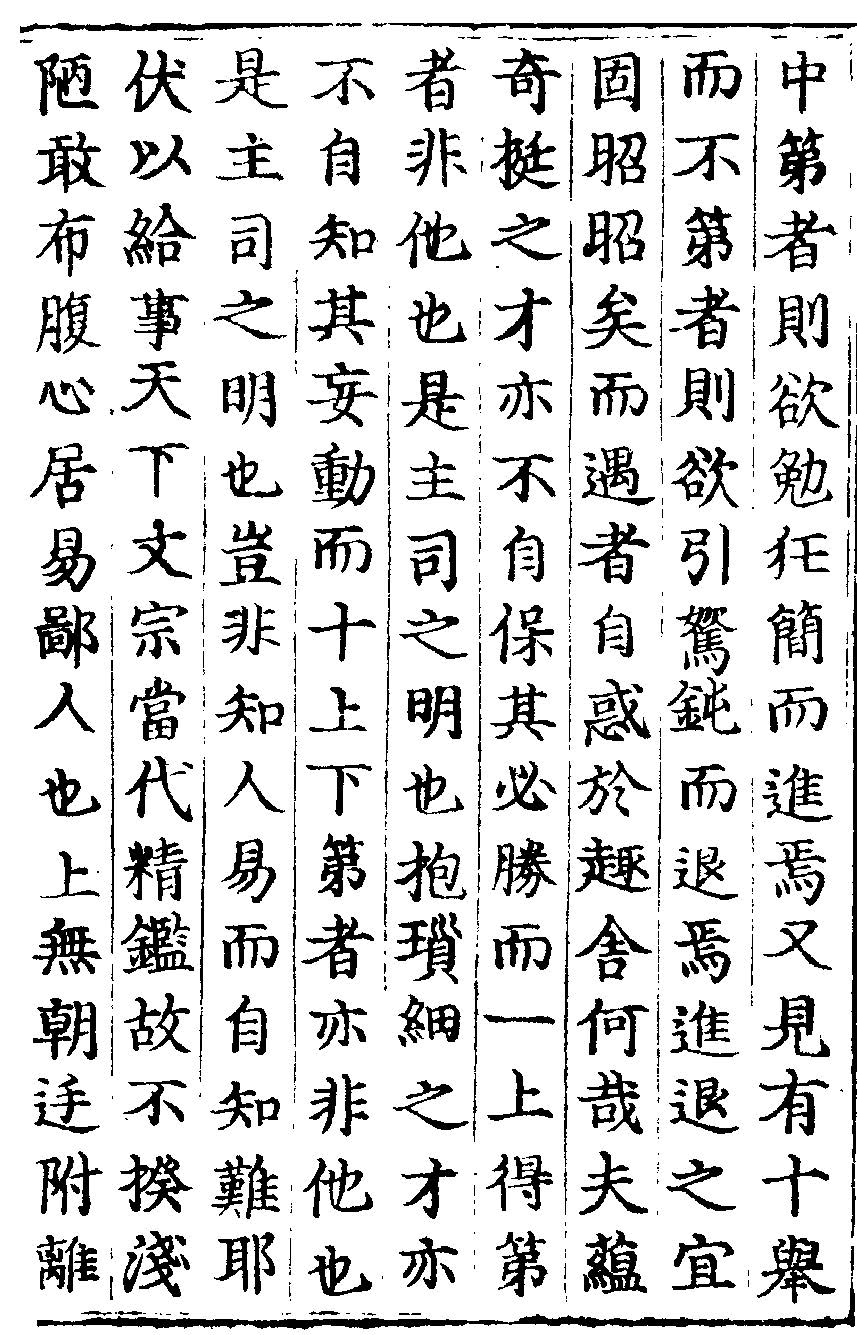 中第者則欲勉狂簡而進焉又見有十舉
而不第者則欲引駑鈍而退焉進退之宜
固昭昭矣而遇者自惑於趣舍何哉夫蘊
奇挺之才亦不自保其必勝而一上得第
者非他也是主司之明也抱瑣細之才亦
不自知其妄動而十上下第者亦非他也
是主司之明也豈非知人易而自知難耶
伏以給事天下文宗當代精鑑故不揆淺
陋敢布腹心居易鄙人也上無朝廷附離